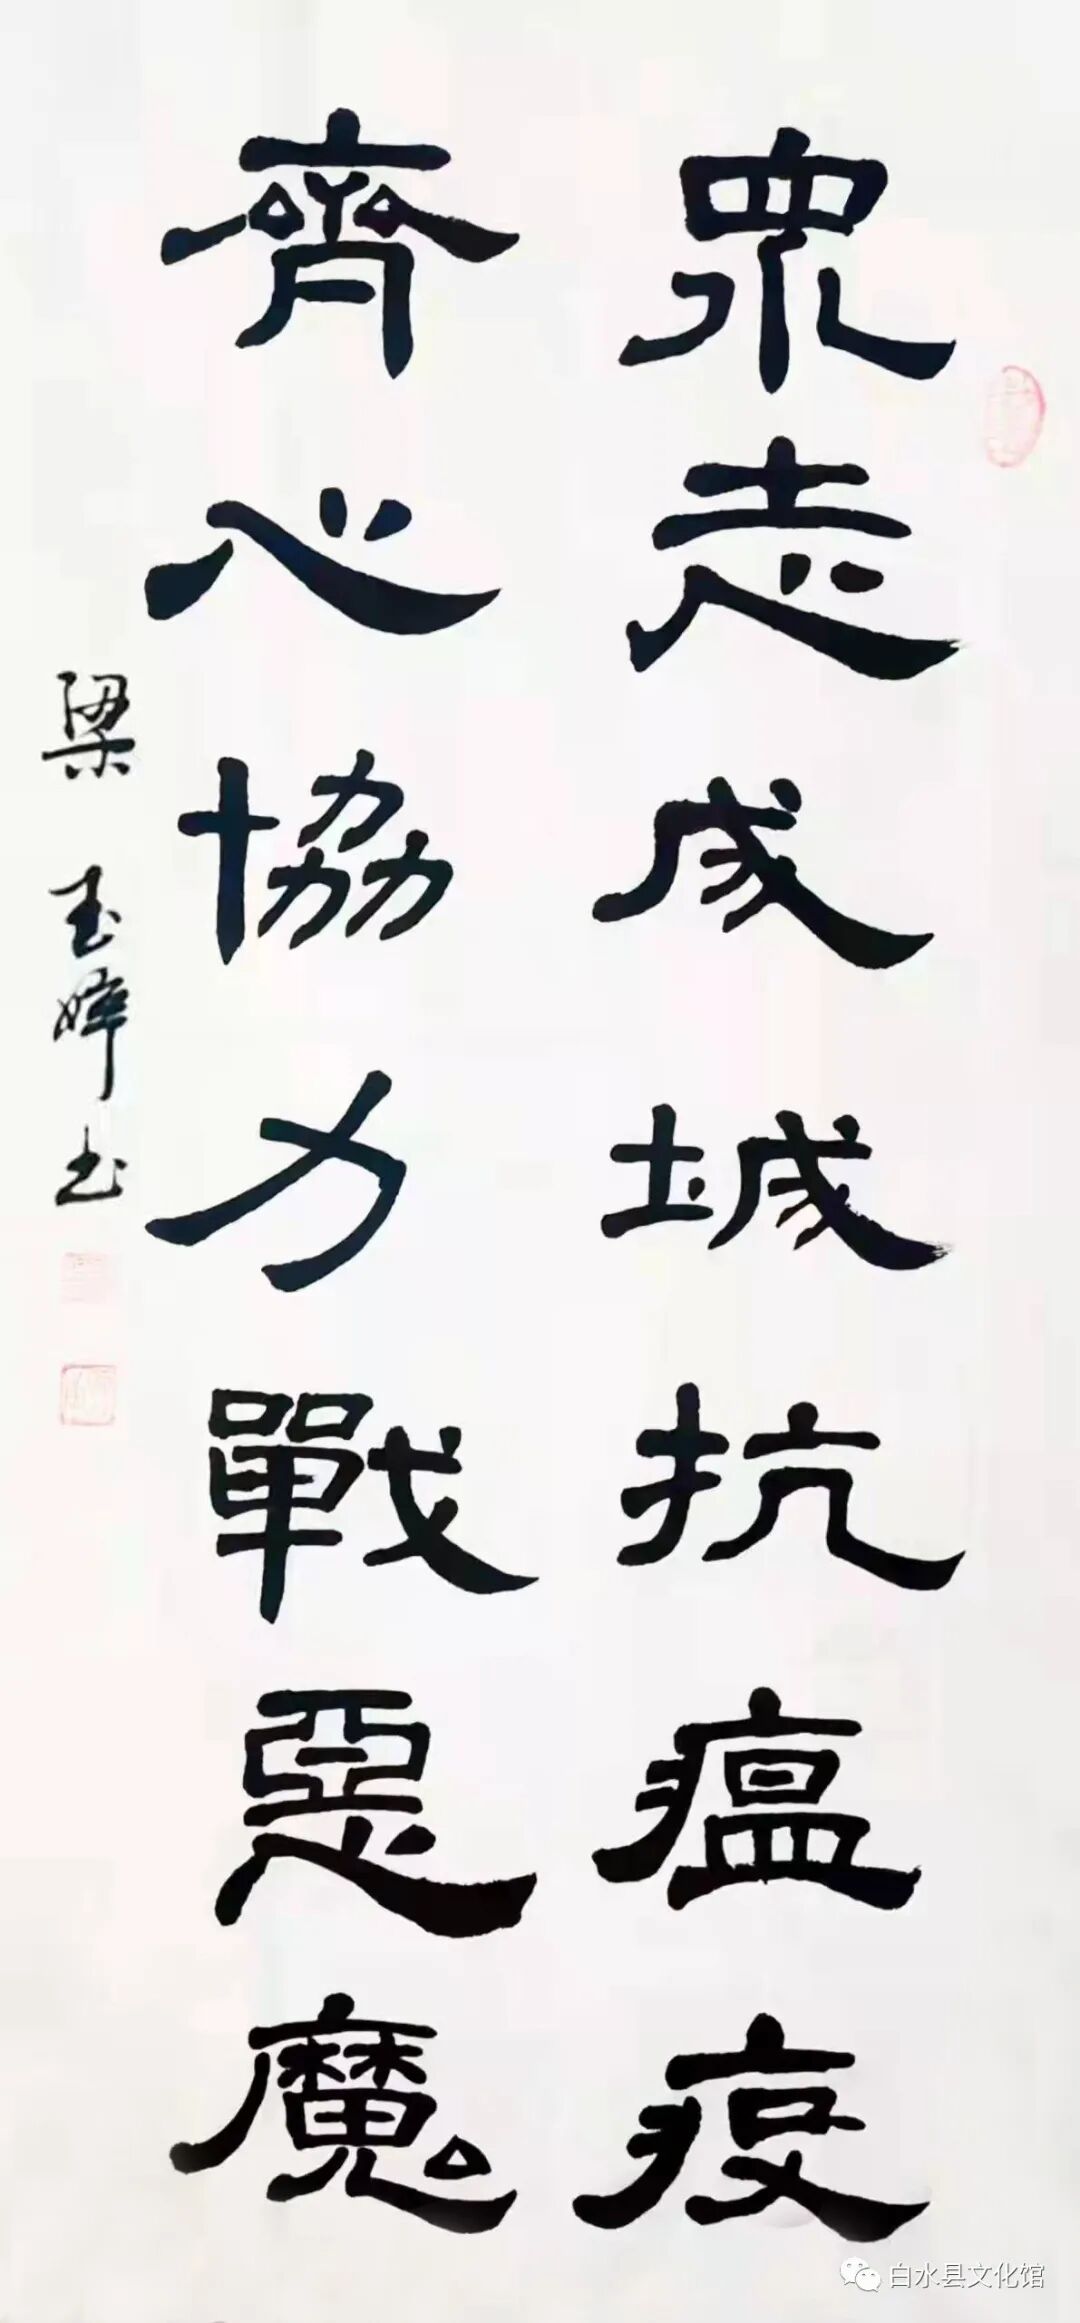 眾志成城抗瘟疫
齊心協力戰惡魔
梁玉婷书
白水县文化馆